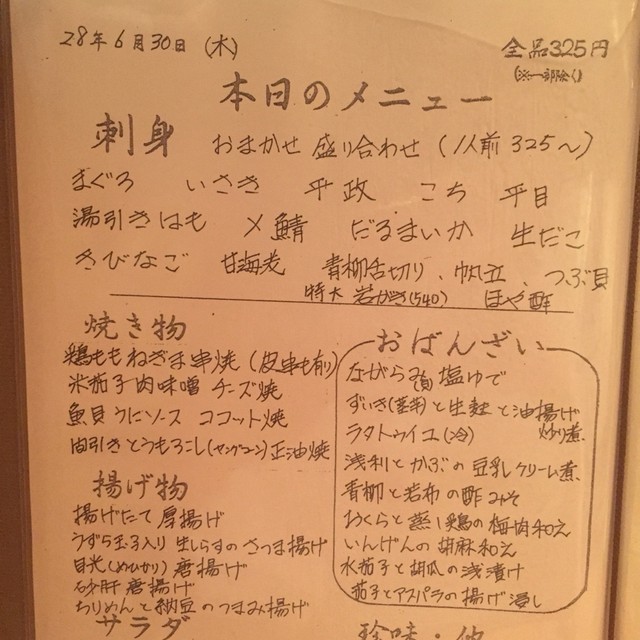 28年6月30日(木)
全品325円
(※一部除く)
本日のメニュー
刺身 おまかせ 盛り合わせ(1人前325~)
まぐろ いさき 平政 こち 平目
湯引きはも 〆鯖 だるまいか 生だこ
きびなご 甘海老 青柳舌切り、帆立、つぶ貝
特大 岩がき(540) ほや酢
焼き物
鶏ももねぎま串焼(皮串も有)
米茄子肉味噌 チーズ焼
魚貝うにソース ココット焼
間引きとうもろこし(ヤングコーン)正油焼
揚げ物
揚げたて 厚揚げ
うずら玉子入り 生しらすの さつま揚げ
目光(めひかり) 唐揚げ
砂肝 唐揚げ
ちりめんと納豆のつまみ揚げ
サラダ
おばんざい
ながら 塩ゆで
ずいき と生麩と油揚げ
炒り煮
ラタトゥイユ(冷)
浅利とかぶの豆乳クリーム煮
青柳と若布の酢みそ
おくらと蒸し鶏の梅肉和え
いんげんの胡麻和え
水茄子と胡瓜の浅漬け
茄子とアスパラの揚げ浸し
珍味・他